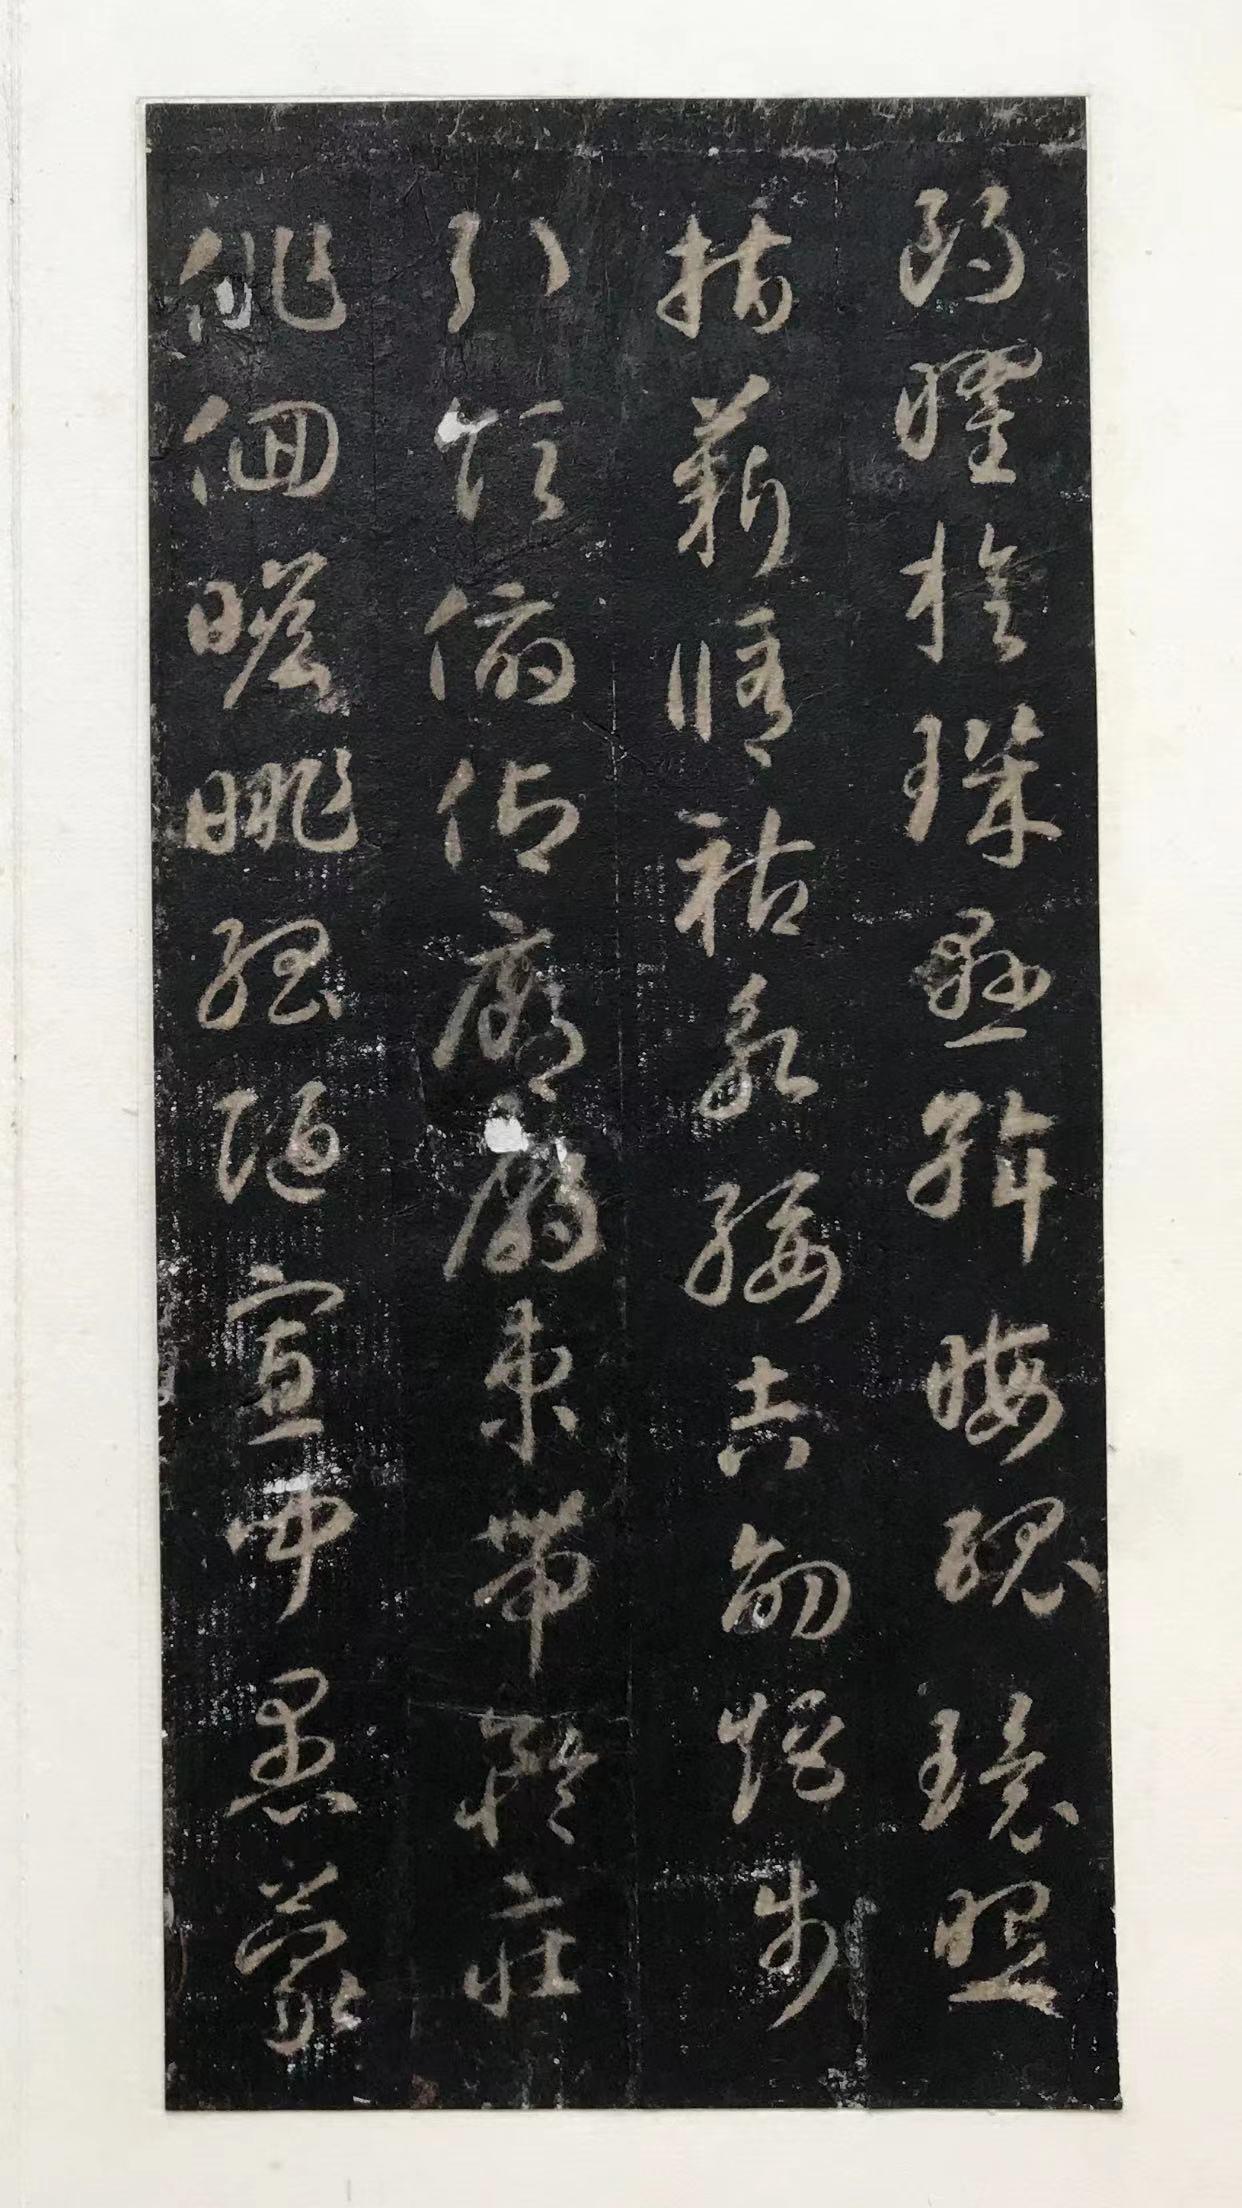 朗曜旋璣懸斡晦魄環照
指薪脩祜永綏吉劭矩步
引領俯仰廊廟束帶矜莊
徘徊瞻眺孤陋寡聞愚蒙